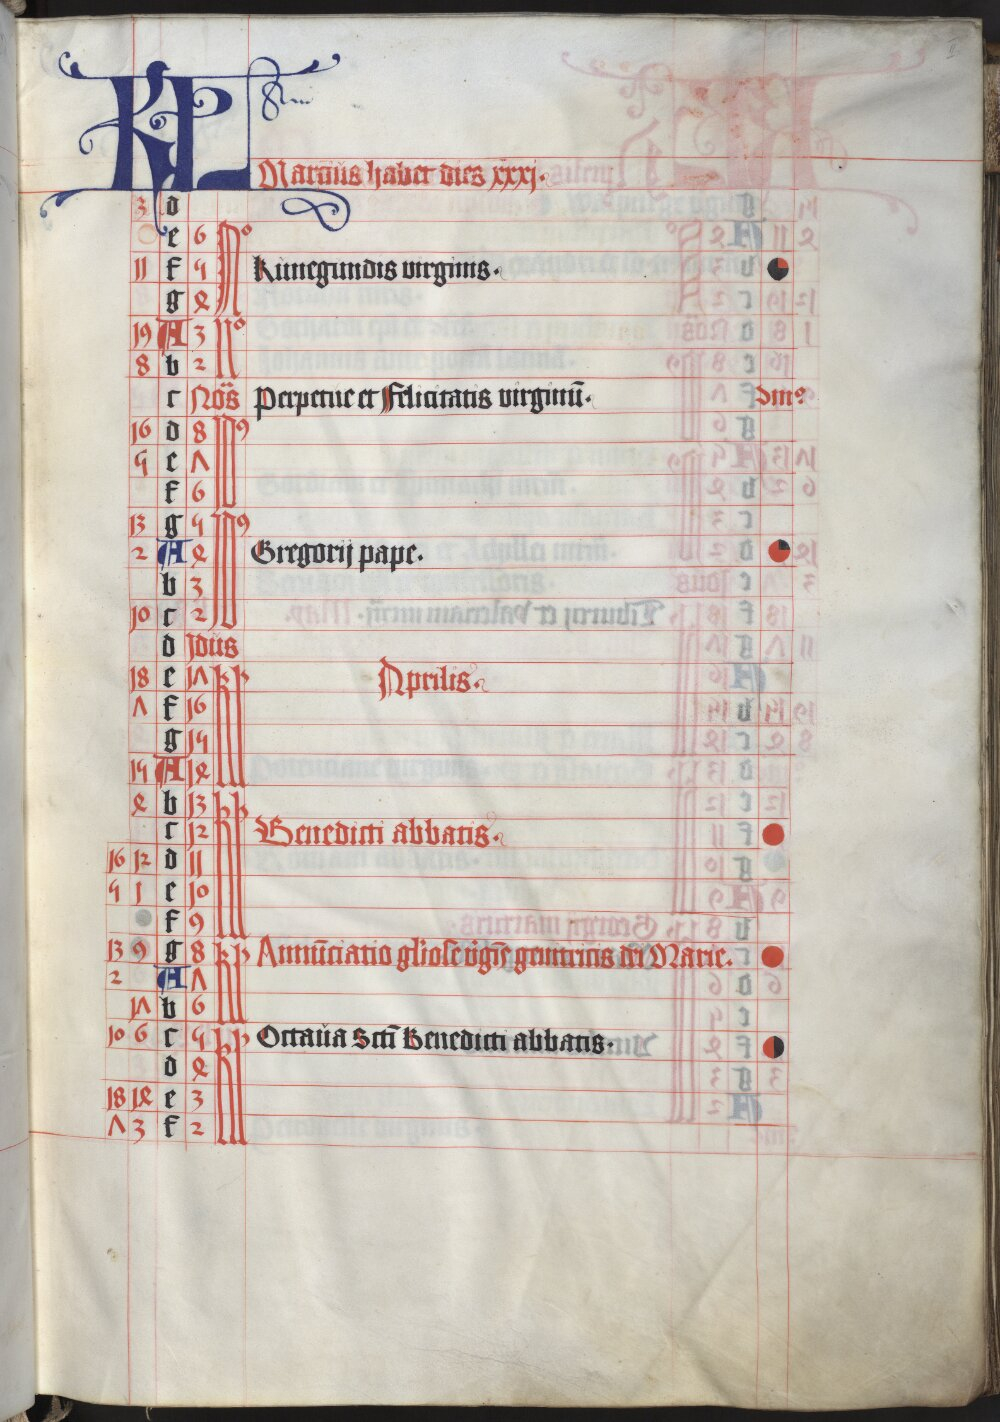 KL
Marcius habet dies xxxj.
3 d
e 6 No
11 f 5 Kunegundis virginis.
g 4
19 A 3 No
8 b 2
c Nos Perpetue et felicitatis virginū. Dmo
16 d 8 Id9
5 e 7
f 6
13 g 5 Id9
2 A 4 Gregorij pape.
b 3
10 c 2
d Idus
18 e 17 kl Aprilis.
7 f 16
g 15
15 A 14
4 b 13 kl
c 12 Benedicti abbatis.
16 12 d 11
5 1 e 10
f 9
13 9 g 8 kl Annūciatio gliose v̄gīs genitricis dei Marie.
2 A 7
17 b 6
10 6 c 5 kl Octaua Scti Benedicti abbatis.
d 4
18 14 e 3
7 3 f 2